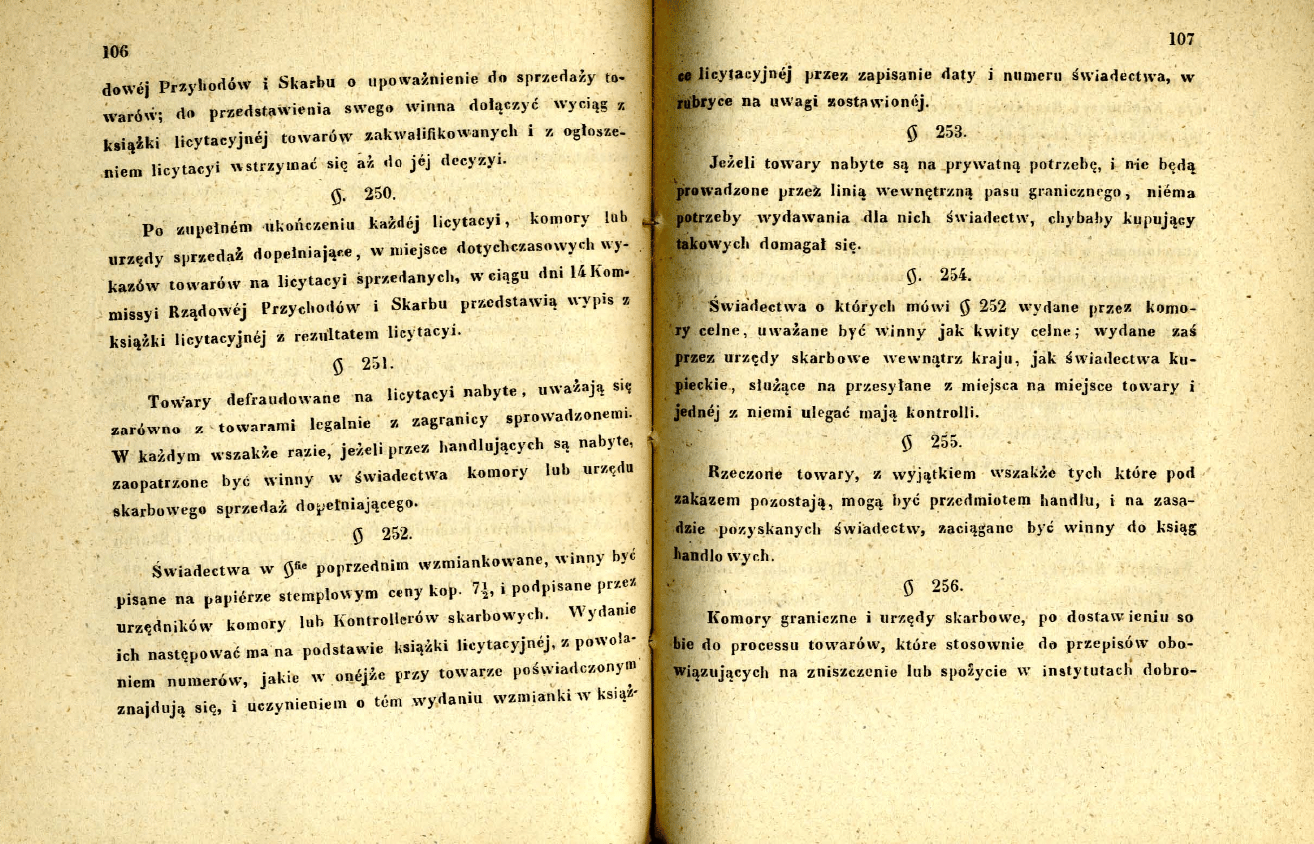 106
dowéj Przychodów i Skarbu o upoważnienie do sprzedaży to-
warów; do przedstawienia swego winna dołączyć wyciąg z
książki licytacyjnéj towarów zakwalifikowanych i z ogłosze-
niem licytacyi wstrzymać się aż do jéj decyzyi.
§. 250.
Po zupełném ukończeniu każdéj licytacyi, komory lub
urzędy sprzedaż dopełniające, w miejsce dotychczasowych wy-
kazów towarów na licytacyi sprzedanych, w ciągu dni 14 Kom-
missyi Rządowéj Przychodów i Skarbu przedstawią wypis z
książki licytacyjnéj z rezultatem licytacyi.
§ 251.
Towary defraudowane na licytacyi nabyte, uważają się
zarówno z towarami legalnie z zagranicy sprowadzonemi.
W każdym wszakże razie, jeżeli przez handlujących są nabyte,
zaopatrzone być winny w świadectwa komory lub urzędu
skarbowego sprzedaż dopełniającego.
§ 252.
Świadectwa w §fie poprzednim wzmiankowane, winny być
pisane na papiérze stemplowym ceny kop. 7½, i podpisane przez
urzędników komory lub Kontrollerów skarbowych. Wydanie
ich następować ma na podstawie książki licytacyjnéj, z powoła-
niem numerów, jakie w onéjże przy towarze poświadczonym
znajdują się, i uczynieniem o tém wydaniu wzmianki w książ-
107
ce licytacyjnéj przez zapisanie daty i numeru świadectwa, w
rubryce na uwagi zostawionéj.
§ 253.
Jeżeli towary nabyte są na prywatną potrzebę, i nie będą
prowadzone przez linią wewnętrzną pasu granicznego, niéma
potrzeby wydawania dla nich świadectw, chybaby kupujący
takowych domagał się.
§. 254.
Świadectwa o których mówi § 252 wydane przez komo-
ry celne, uważane być winny jak kwity celne; wydane zaś
przez urzędy skarbowe wewnątrz kraju, jak świadectwa ku-
pieckie, służące na przesyłane z miejsca na miejsce towary i
jednéj z niemi ulegać mają kontrolli.
§ 255.
Rzeczone towary, z wyjątkiem wszakże tych które pod
zakazem pozostają, mogą być przedmiotem handlu, i na zasa-
dzie pozyskanych świadectw, zaciągane być winny do ksiąg
handlowych.
§ 256.
Komory graniczne i urzędy skarbowe, po dostawieniu so
bie do processu towarów, które stosownie do przepisów obo-
wiązujących na zniszczenie lub spożycie w instytutach dobro-